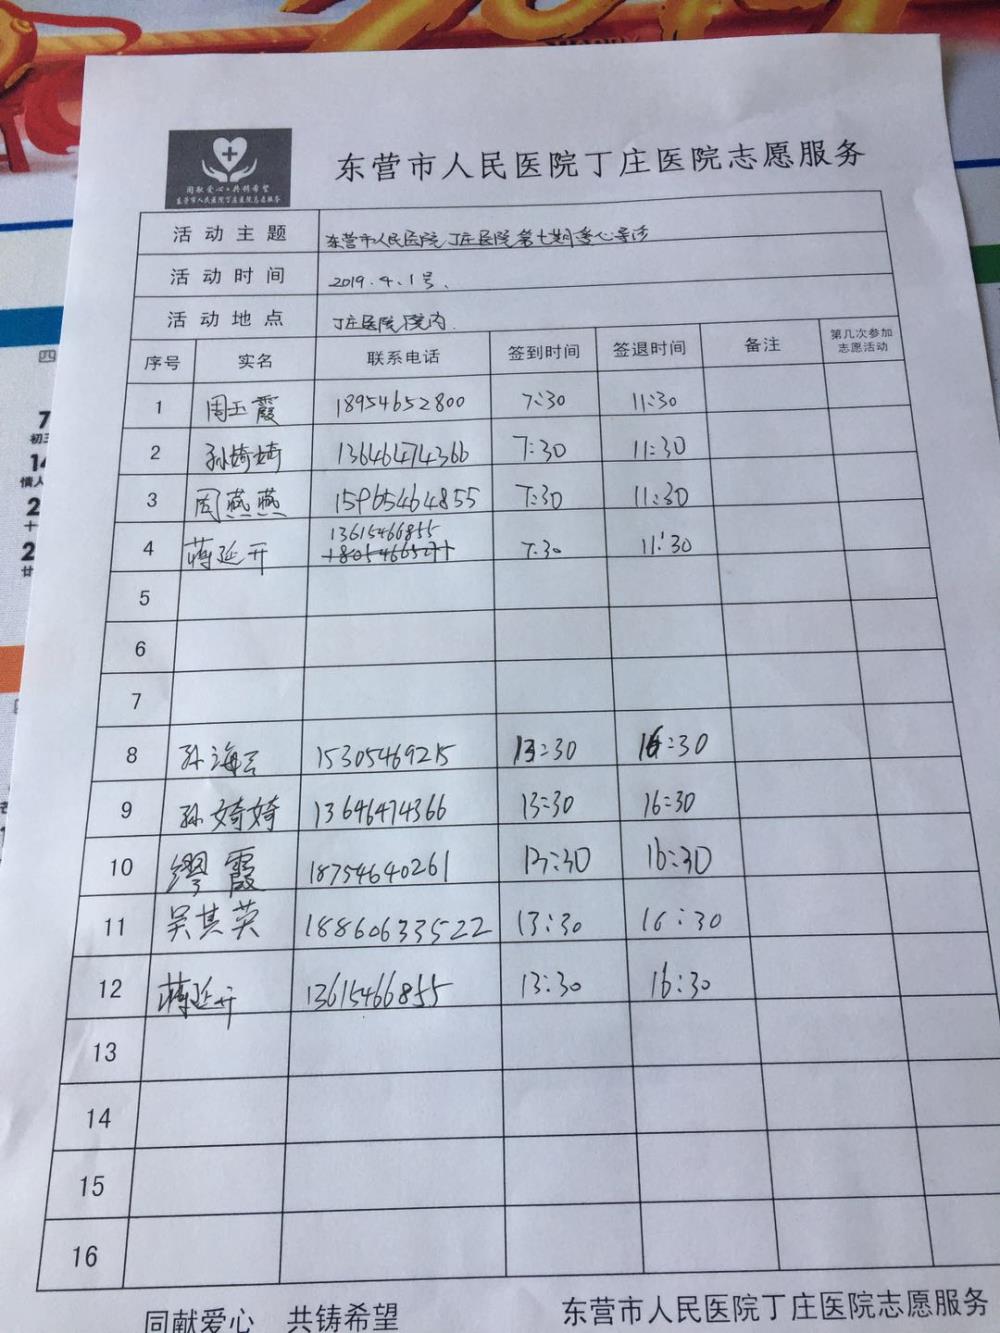 同献爱心·共铸希望
东营市人民医院丁庄医院志愿服务
东营市人民医院丁庄医院志愿服务
活动主题 东营市人民医院丁庄医院第七期爱心导诊
活动时间 2019.4.1号.
活动地点 丁庄医院院内.
序号 实名 联系电话 签到时间 签退时间 备注 第几次参加志愿活动
1 周玉霞 18954652800 7:30 11:30
2 孙婍婍 13646474366 7:30 11:30
3 周燕燕 15965464855 7:30 11:30
4 蒋延开 13615466855 7:30 11:30
5
6
7
8 孙海云 15305469215 13:30 16:30
9 孙婍婍 13646474366 13:30 16:30
10 缪霞 18754640261 13:30 16:30
11 吴其英 18860633522 13:30 16:30
12 蒋延开 13615466855 13:30 16:30
13
14
15
16
同献爱心 共铸希望 东营市人民医院丁庄医院志愿服务